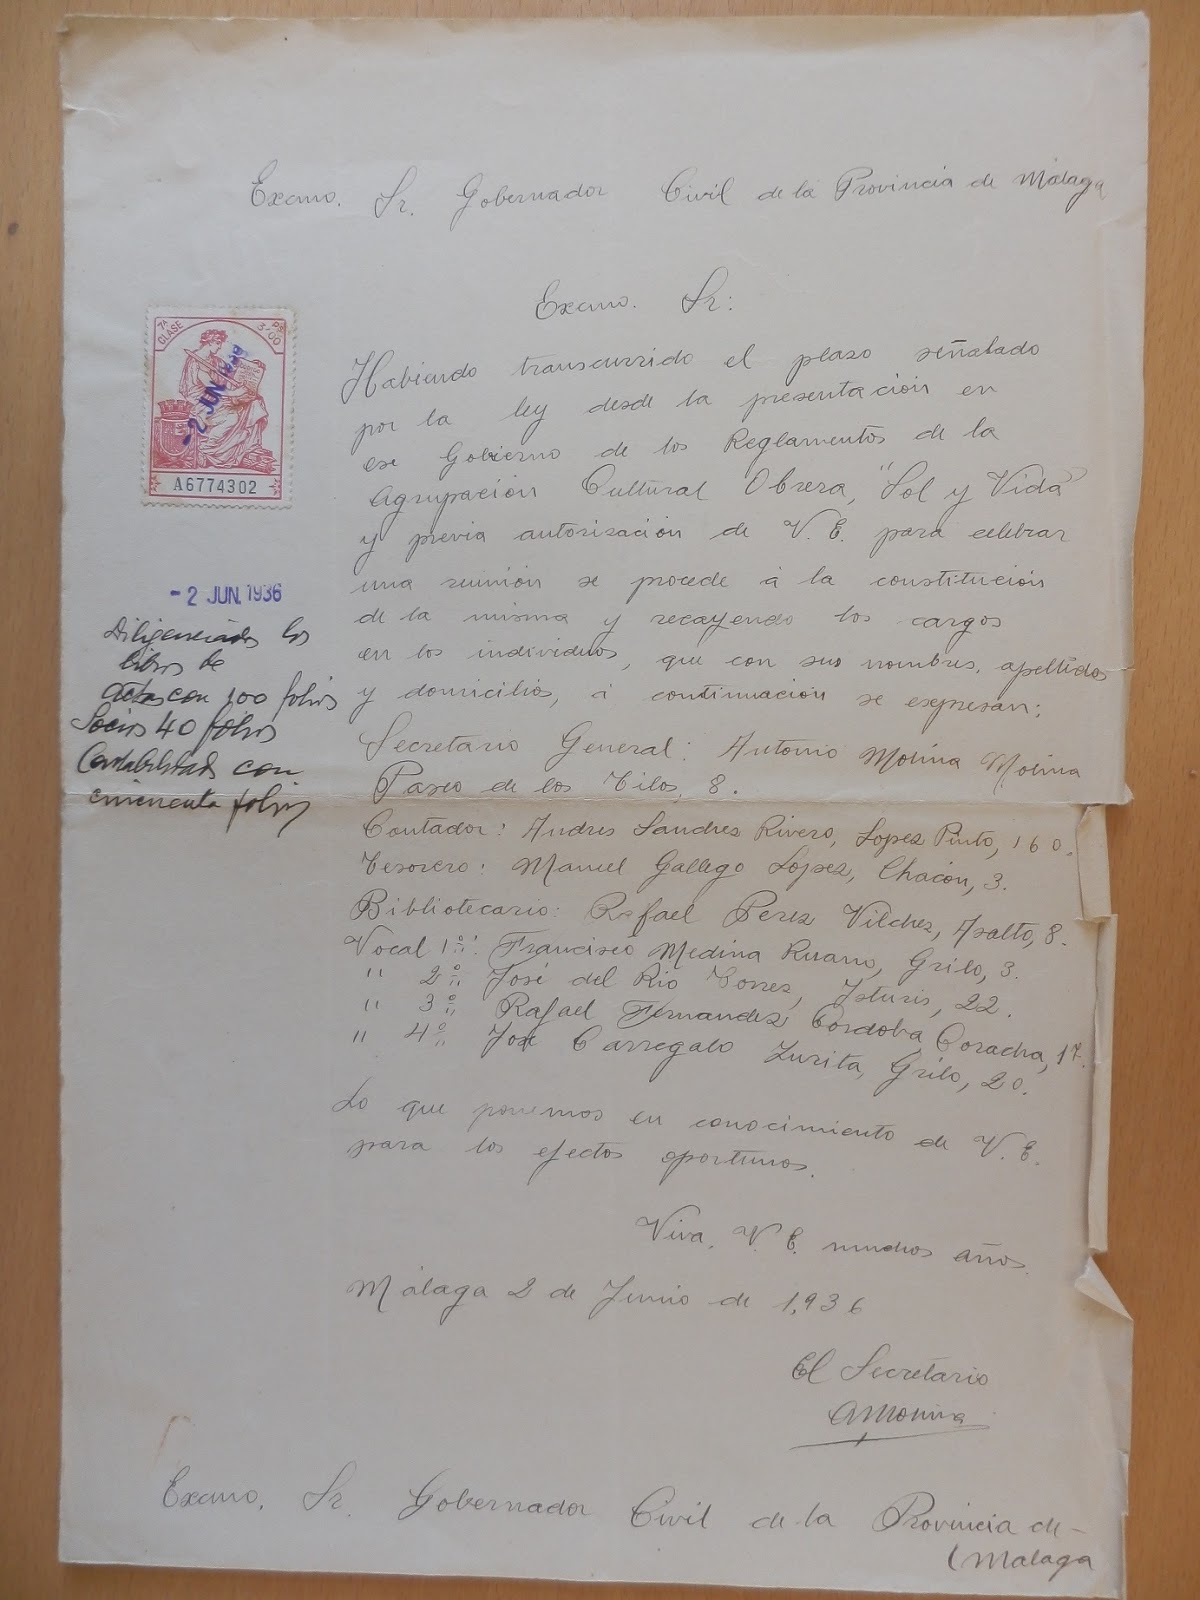 Excmo. Sr. Gobernador Civil de la Provincia de Málaga
Excmo. Sr:
7ª CLASE
3'00
-2 JUN 1936
A6774302
Habiendo transcurrido el plazo señalado
por la ley desde la presentación en
ese Gobierno de los Reglamentos de la
Agrupación Cultural Obrera, "Sol y Vida"
y previa autorización de V. E. para celebrar
una reunión se procede á la constitución
de la misma y recayendo los cargos
en los individuos, que con sus nombres, apellidos
y domicilios, á continuación se expresan:
Secretario General: Antonio Molina Molina
Paseo de los Tilos, 8.
Contador: Andres Sanchez Rivero, Lopez Pinto, 160.
Tesorero: Manuel Gallego López, Chacón, 3.
Bibliotecario: Rafael Perez Vilchez, Asalto, 8.
Vocal 1º: Francisco Medina Ruano, Grilo, 3.
" 2º " José del Rio Torres, Isturis, 22.
" 3º " Rafael Fernandez Cordoba Coracha, 17.
" 4º " José Carregalo Zurita, Grilo, 20.
Lo que ponemos en conocimiento de V. E.
para los efectos oportunos.
Viva, V. E. muchos años.
Málaga 2 de Junio de 1,936
El Secretario
AMolina
Excmo, Sr. Gobernador Civil de la Provincia de
Málaga
-2 JUN. 1936
Diligenciados los
libros de
Actas con 100 folios
Socios 40 folios
Contabilidad con
cincuenta folios